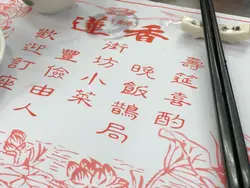 蓮香
壽筵喜酌
晚飯鵲局
街坊小菜
豐儉由人
歡迎訂座